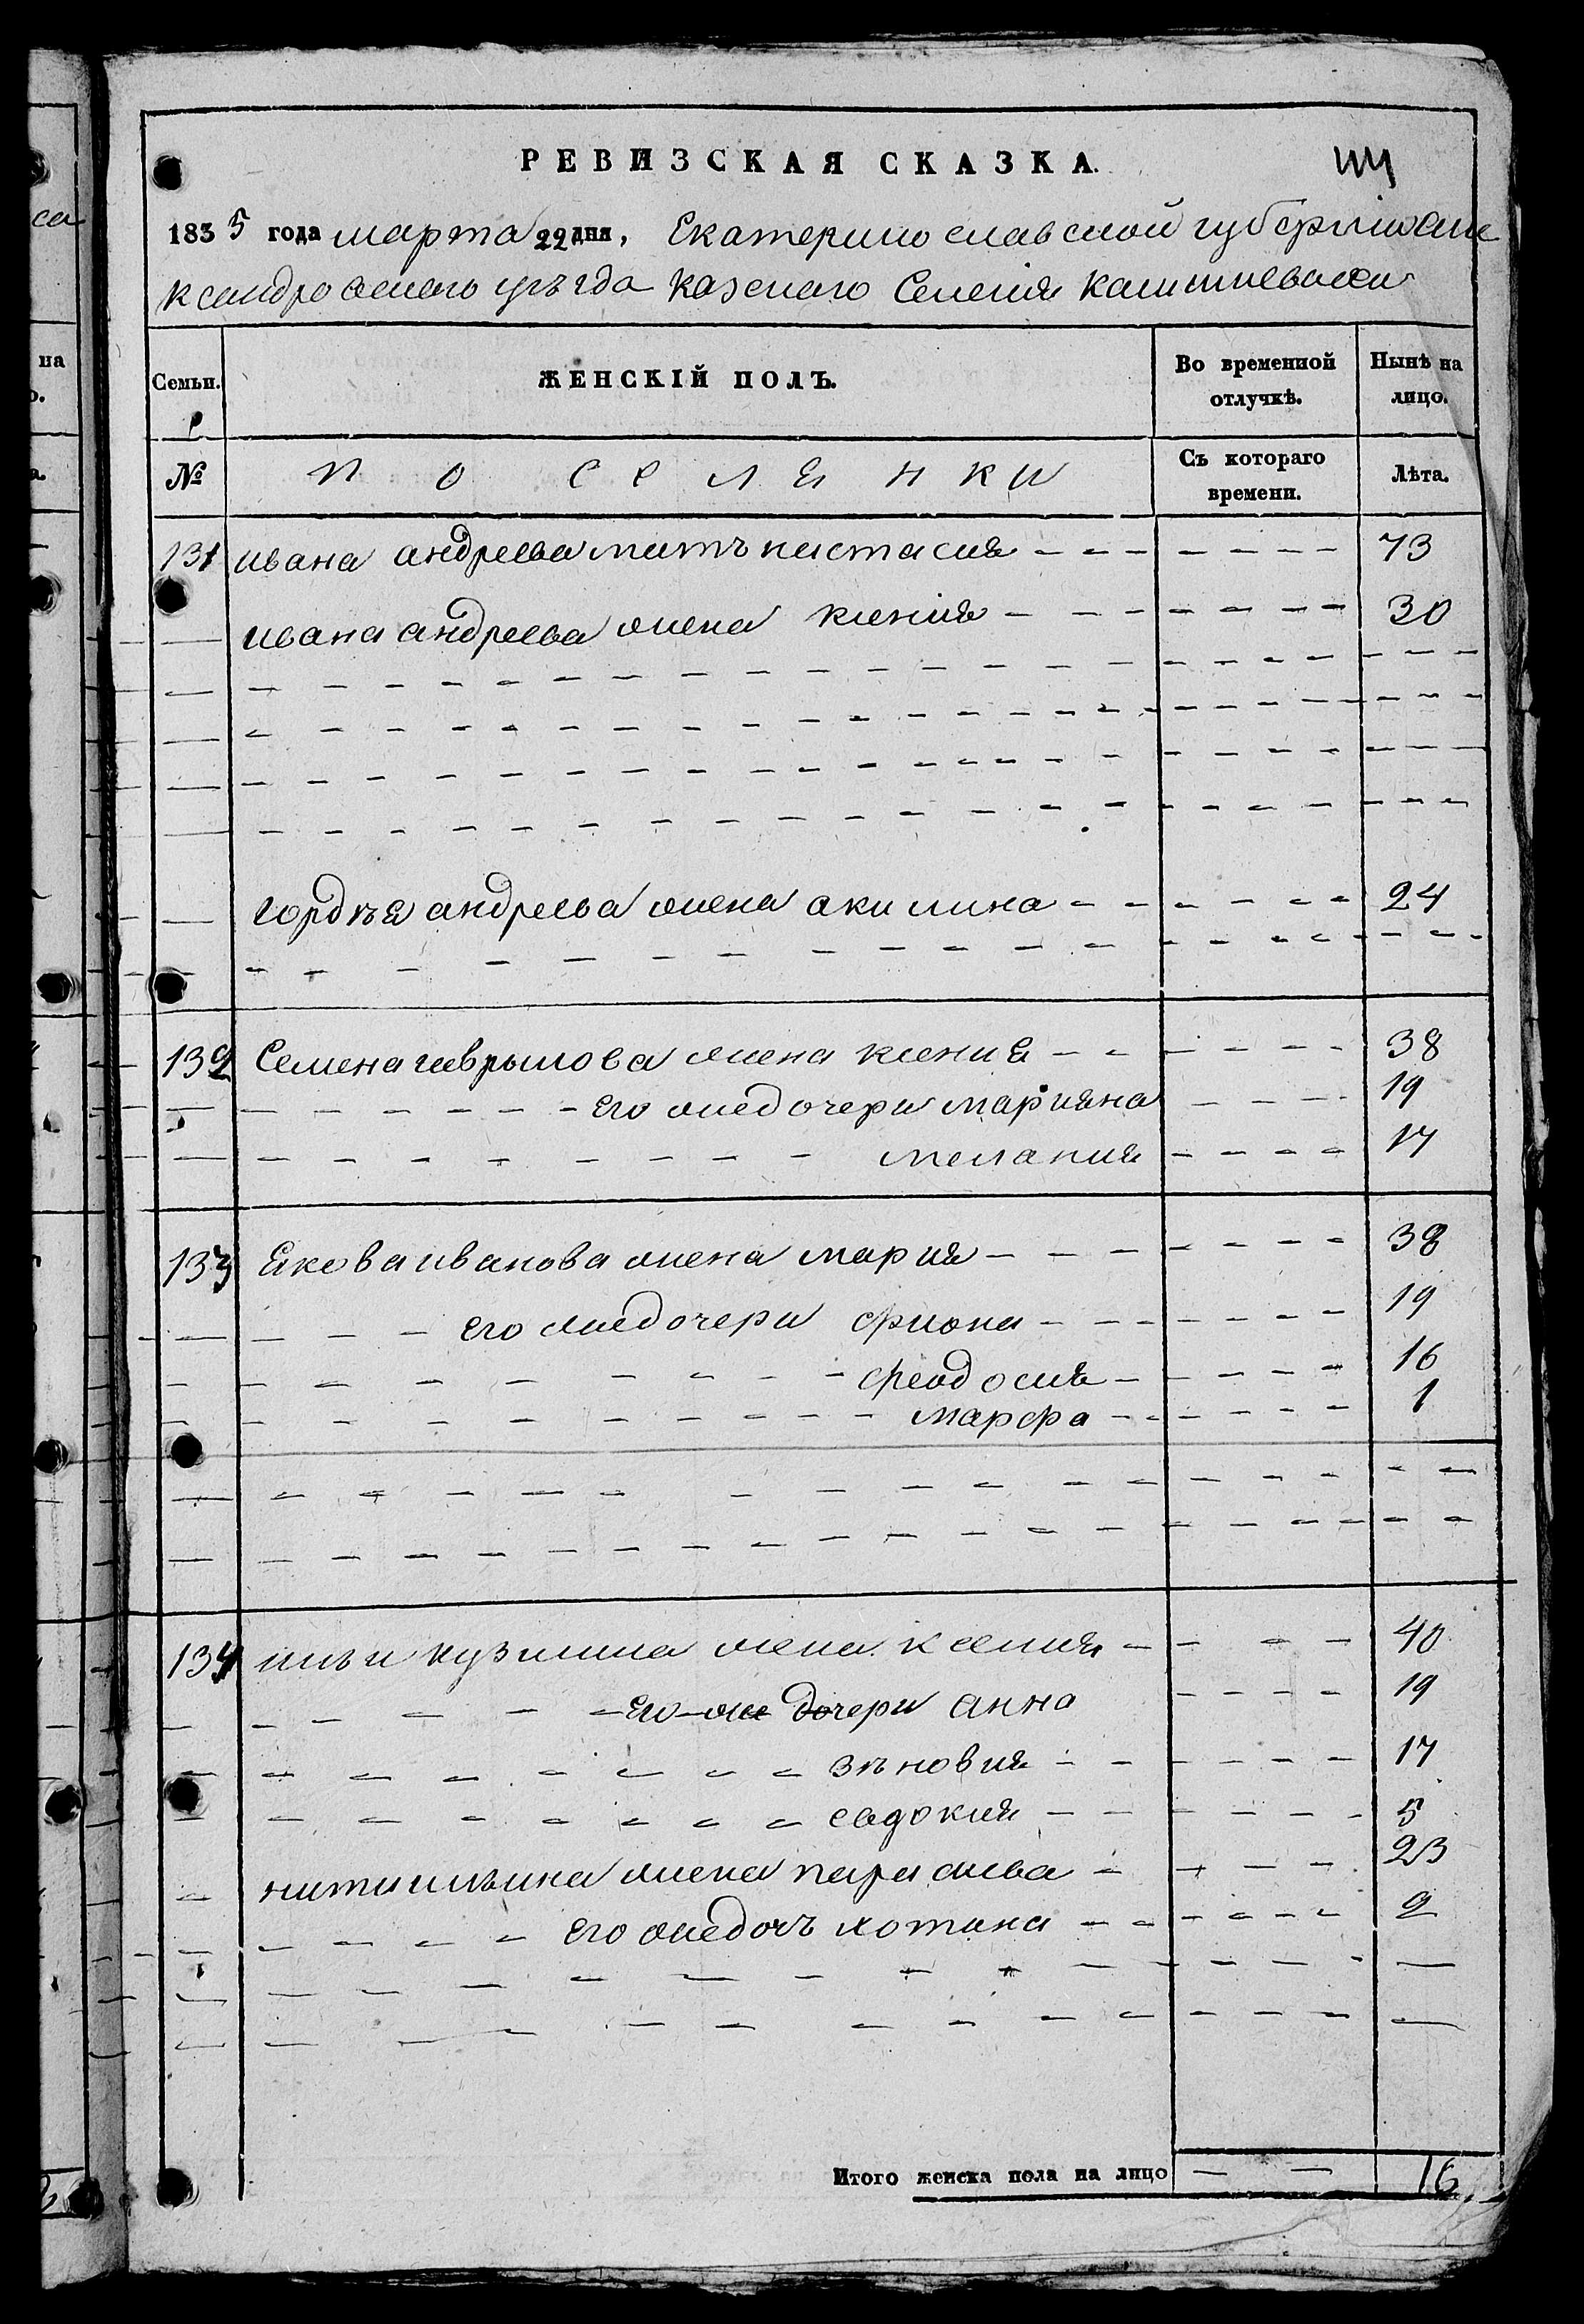 РЕВИЗСКАЯ СКАЗКА.
1835 года марта 22 дня, Екатеринославской губернии Але
ксандровскаго уѣзда Казенаго Селения
Семьи. ЖЕНСКІЙ ПОЛЪ. Во временной отлучкѣ. Нынѣ на лицо.
№ поселянки Съ котораго времени. Лѣта.
131 ивана андреева мать настасия 73
ивана андреева жена ксения 30
гордѣя андреева жена акилина 24
132 Семена гаврылова жена ксения 38
его же дочери марияна 19
мелания 17
133 Якова иванова жена мария 38
его же дочери фиона 19
феодосия 16
марфа 1
134 ильи кузмина жена ксения 40
его же дочери анна 19
зѣновия 17
евдокия 5
ильина жена параскева 23
его же дочь хотина 2
Итого женска пола на лицо 16
са
на